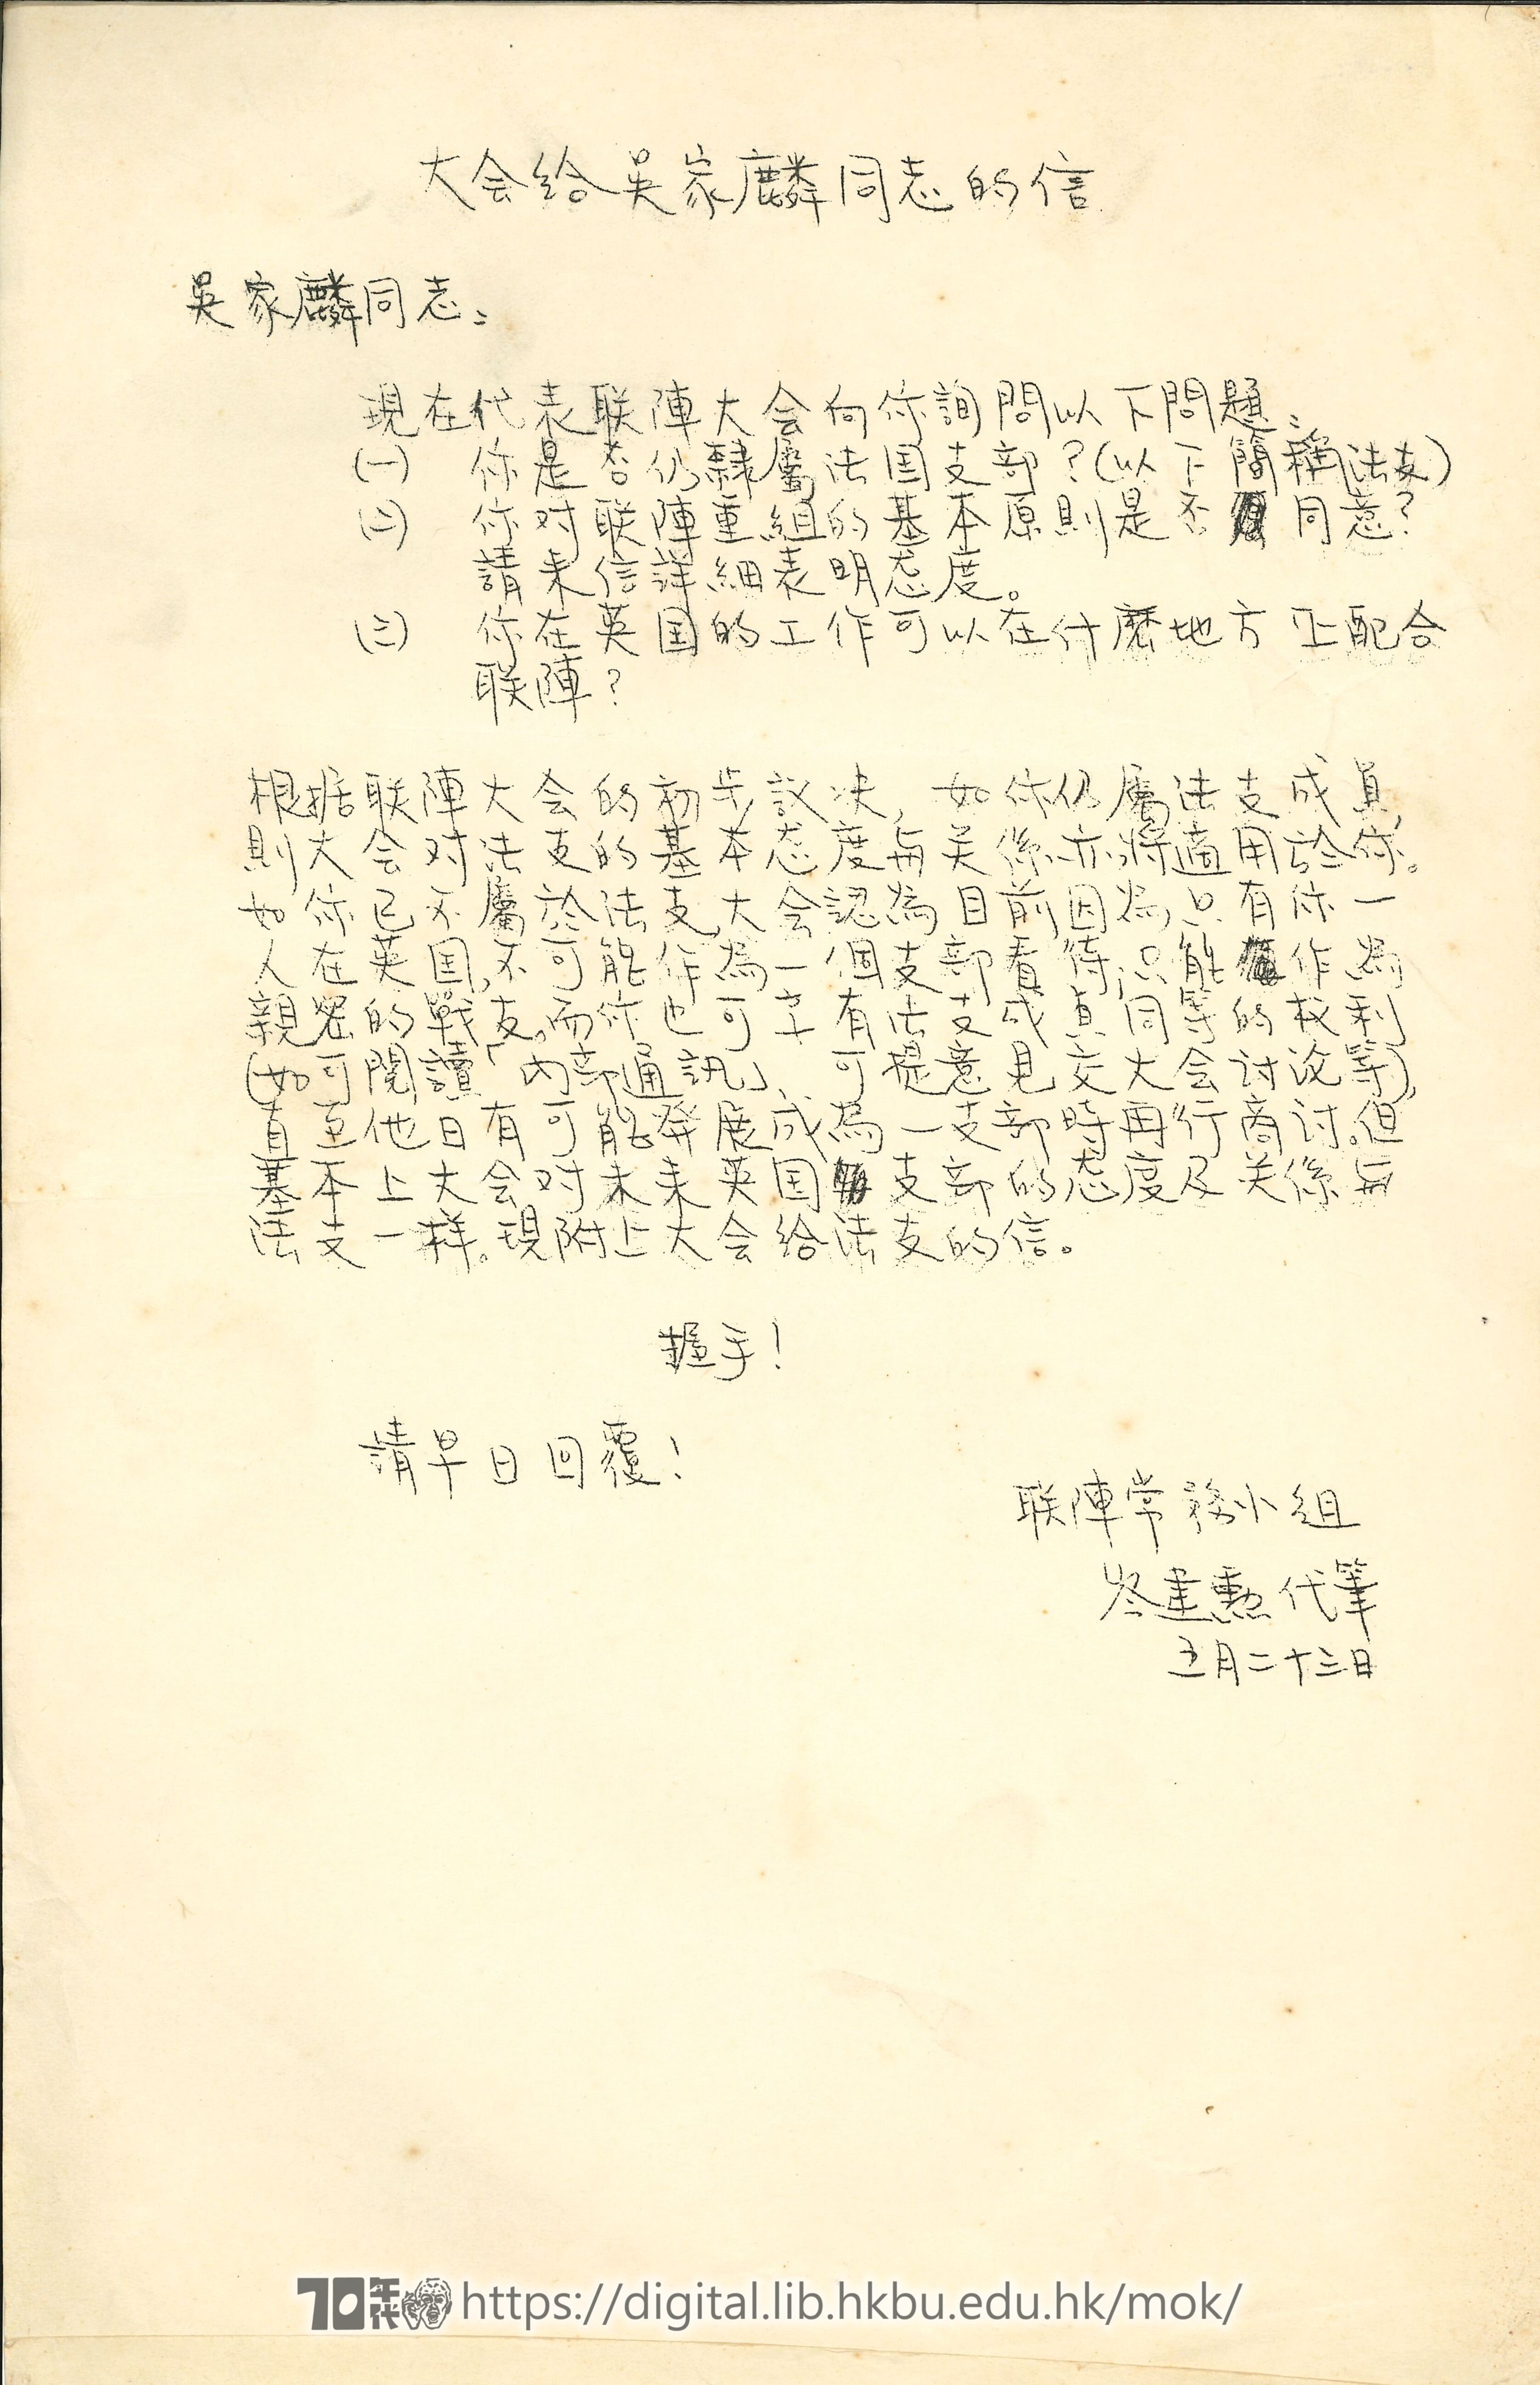 大会给吳家麟同志的信
吳家麟同志:
現在代表联陣大会向你詢問以下問題:
(一) 你是否仍隸屬法国支部?(以下簡稱法支)
(二) 你对联陣重組的基本原則是否同意?
請来信詳細表明态度。
(三) 你在英国的工作可以在什麽地方上配合
联陣?
根据联陣大会的初步議决,如你仍屬法支成員,
則大会对法支的基本态度与关係亦將適用於你。
如你已不屬於法支,大会認為目前因為只有你一
人在英国,不可能作為一個支部看待,只能作為
親密的戰友。而你也可享有法支成員同等的权利
(如可閱讀「内部通訊」、可提意見交大会讨论等),
直至他日有可能發展成為一支部時再行商讨。但
基本上大会对未来英国支部的态度及关係与
法支一样。現附上大会給法支的信。
握手!
請早日回覆!
联陣常務小組
岑建勲代筆
五月二十三日
70年代 https://digital.lib.hkbu.edu.hk/mok/